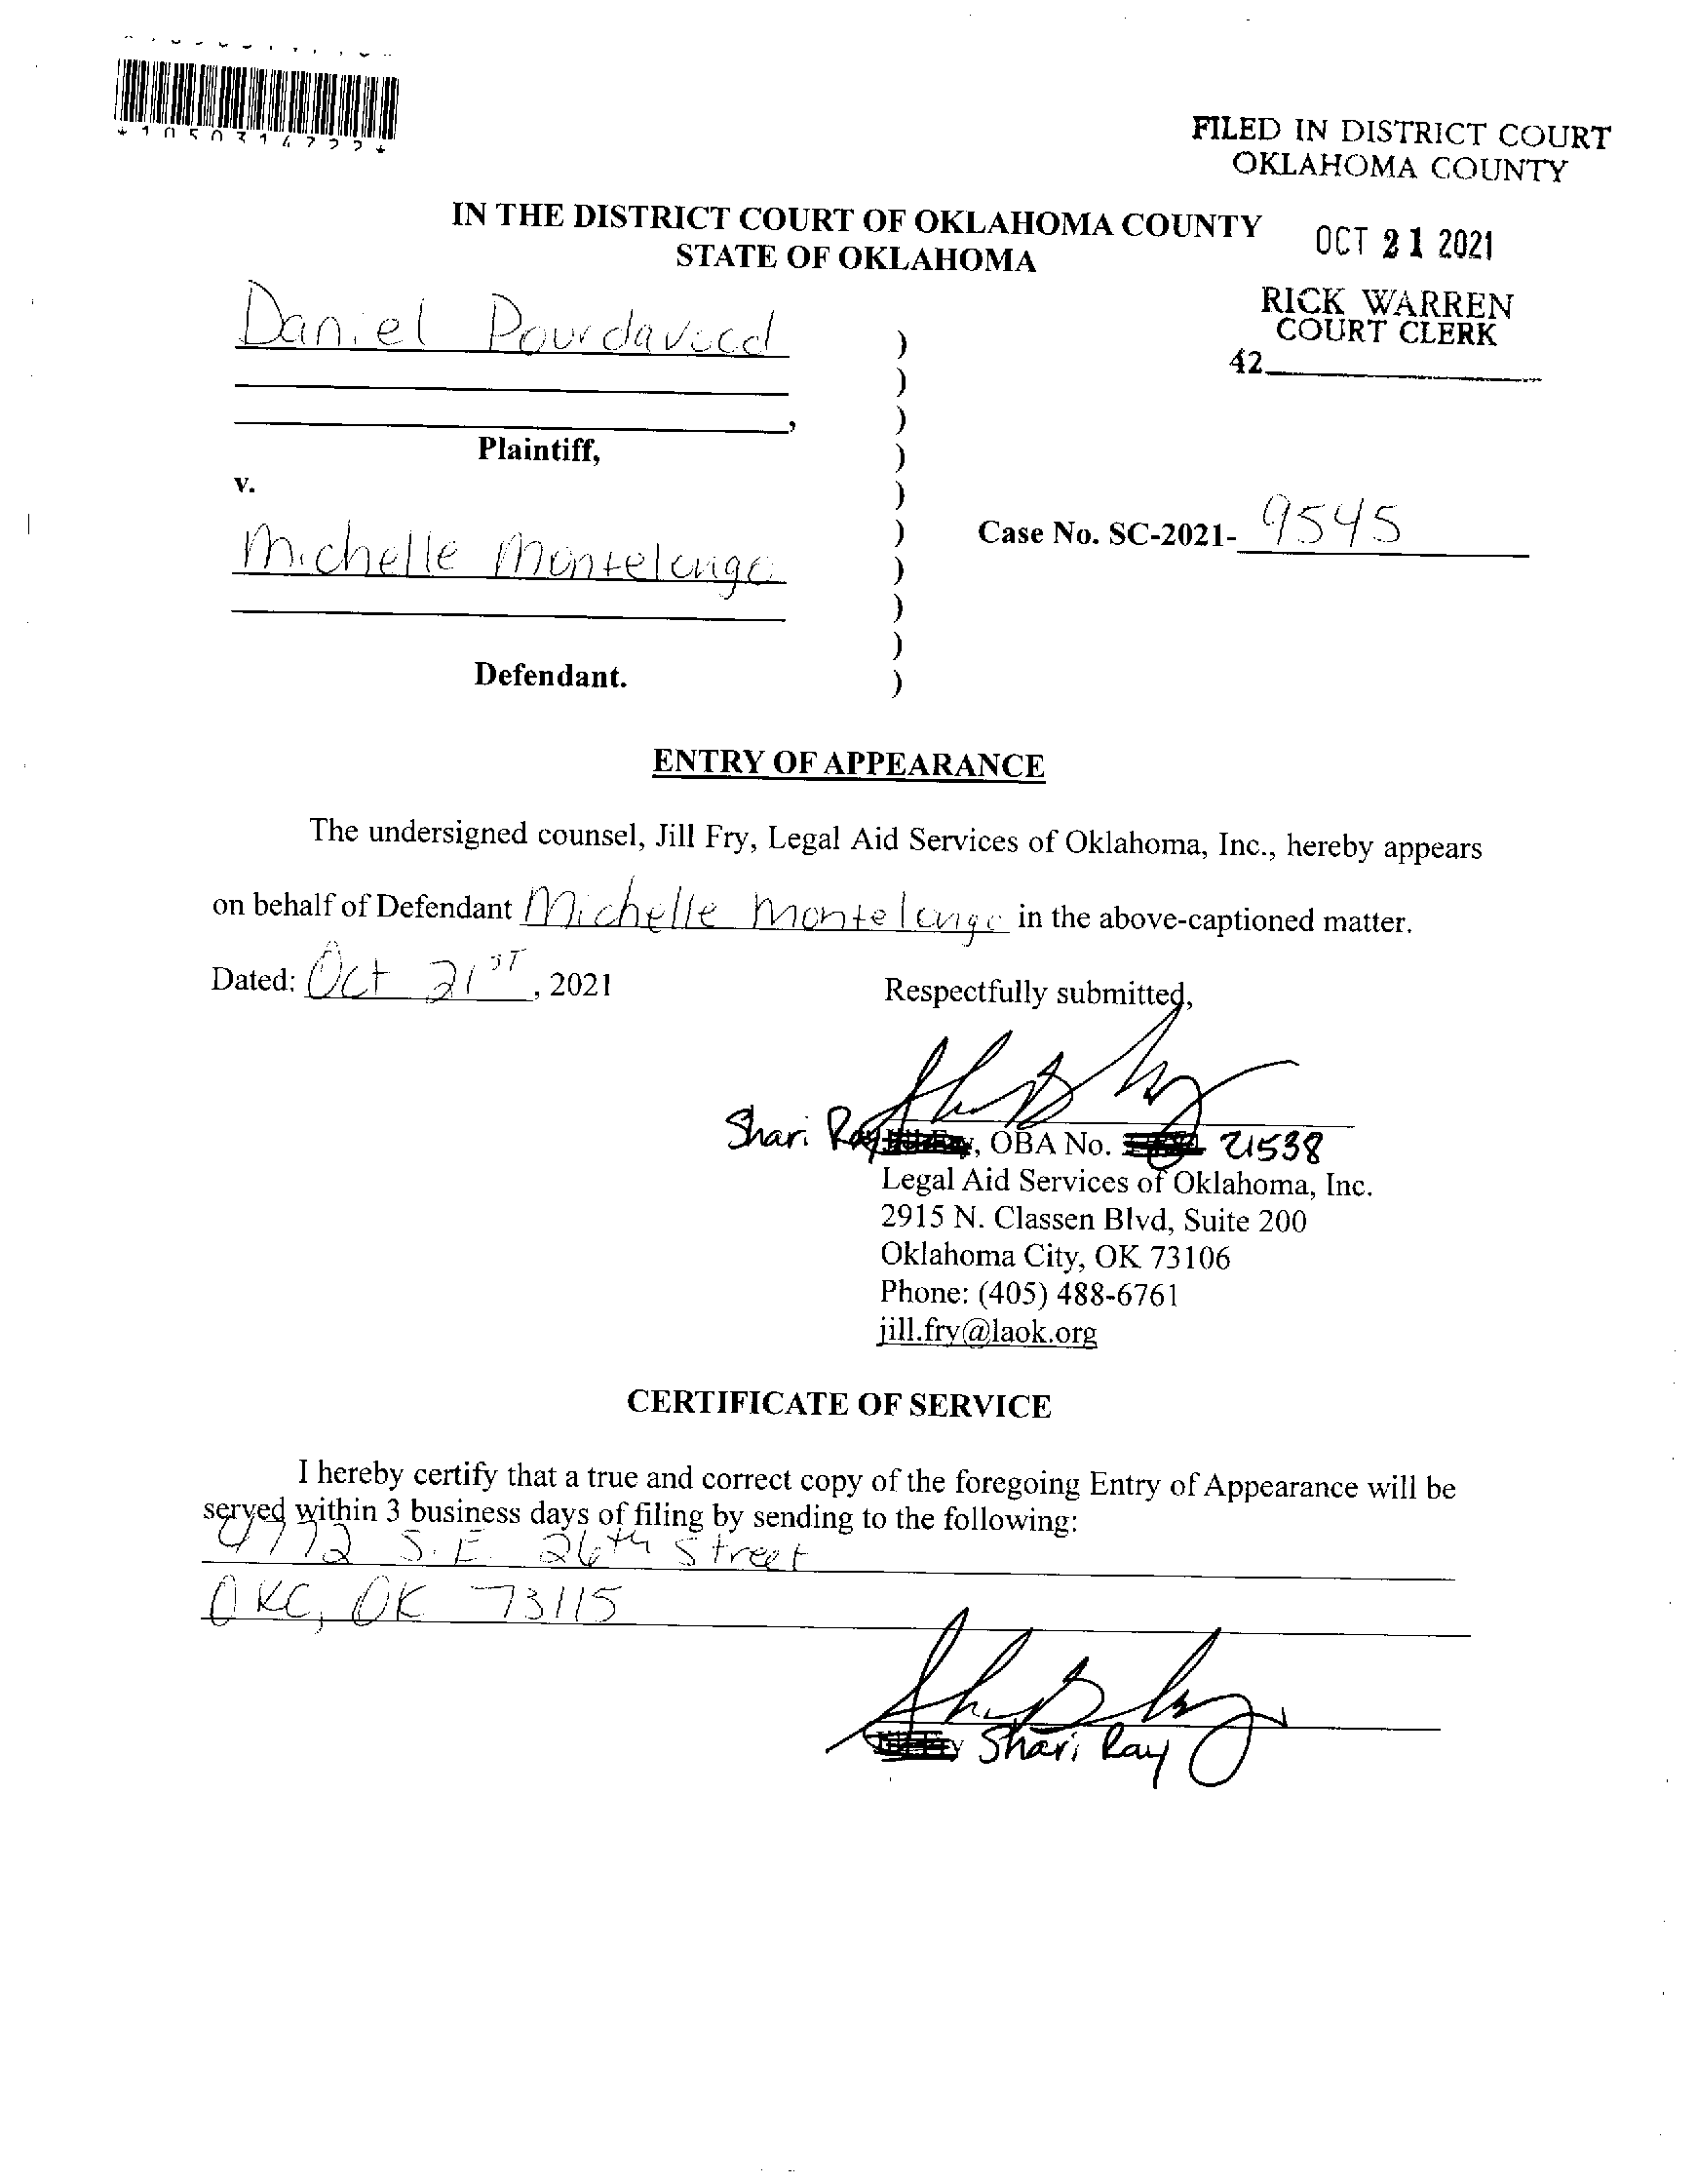 FILED IN DISTRICT COURT
OKLAHOMA COUNTY
IN THE DISTRICT COURT OF OKLAHOMA COUNTY
STATE OF OKLAHOMA
OCT 21 2021
RICK WARREN
COURT CLERK
42
Daniel Pourdavood
)
)
, )
Plaintiff, )
v. )
) Case No. SC-2021- 9545
Michelle Montelongo )
)
)
Defendant. )
ENTRY OF APPEARANCE
The undersigned counsel, Jill Fry, Legal Aid Services of Oklahoma, Inc., hereby appears
on behalf of Defendant Michelle Montelongo in the above-captioned matter.
Dated: Oct 21ST, 2021
Respectfully submitted,
Shari Ray, OBA No. 21538
Legal Aid Services of Oklahoma, Inc.
2915 N. Classen Blvd, Suite 200
Oklahoma City, OK 73106
Phone: (405) 488-6761
jill.fry@laok.org
CERTIFICATE OF SERVICE
I hereby certify that a true and correct copy of the foregoing Entry of Appearance will be
served within 3 business days of filing by sending to the following:
4772 S.E. 26th Street
OKC, OK 73115
Shari Ray